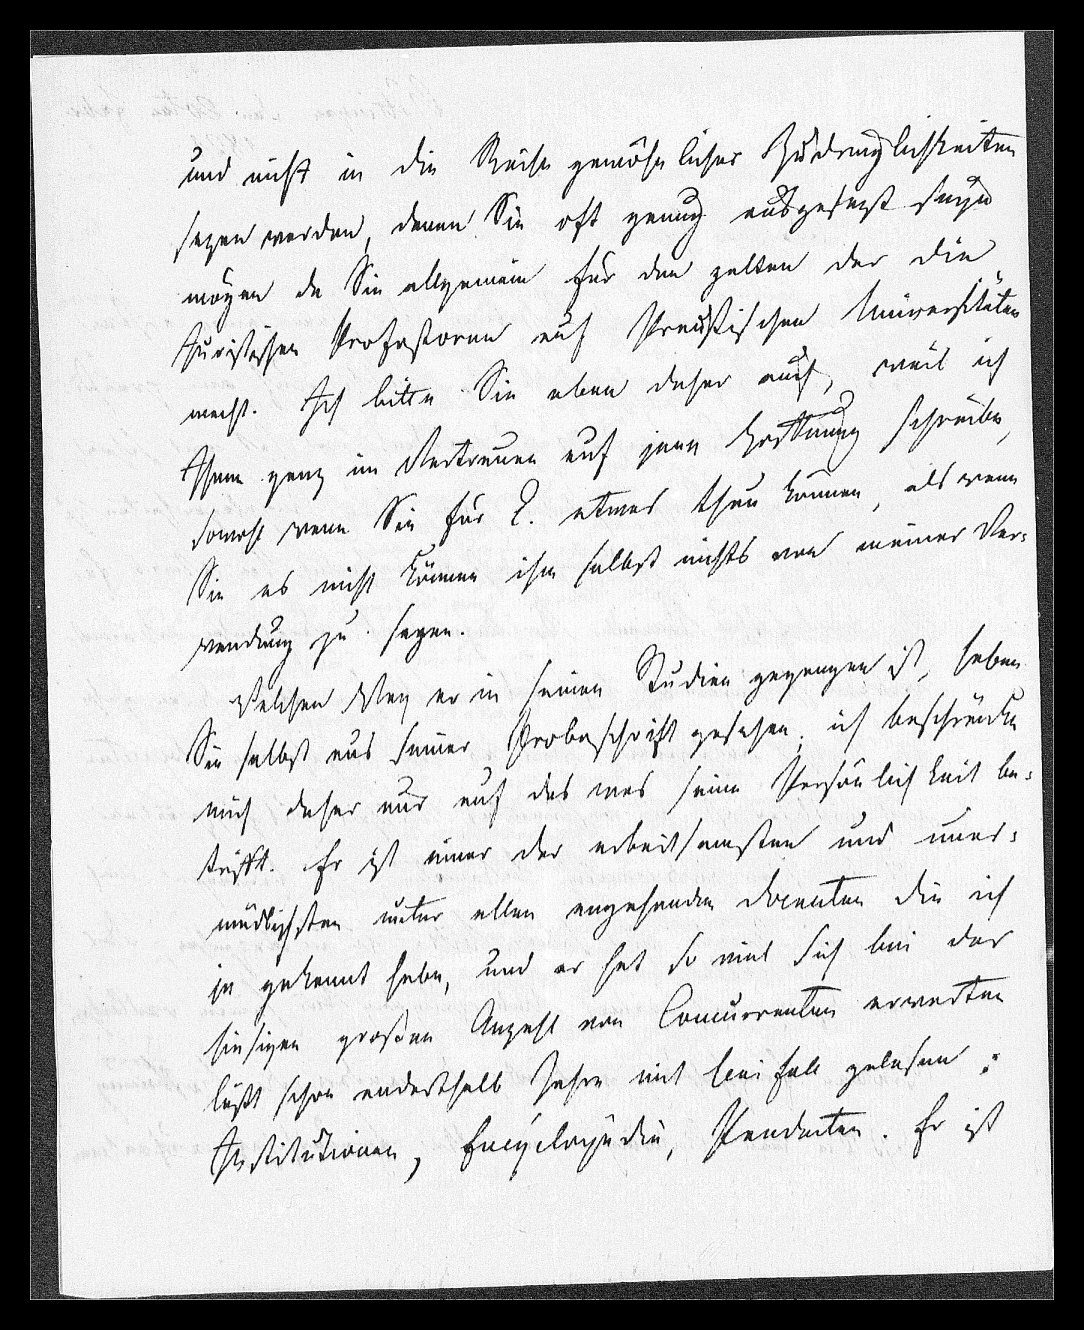 und nicht in die Reihe gewöhnlicher Zudringlichkeiten
setzen werden, denen Sie oft genug ausgesetzt seyn
mögen da Sie allgemein für den gelten der die
Juristischen Professoren auf Preußischen Universitäten
macht. Ich bitte Sie eben daher auch, weil ich
Ihnen ganz im Vertrauen auf jene Hoffnung schreibe,
sowohl wenn Sie für L. etwas thun können, als wenn
Sie es nicht können ihm selbst nichts von meiner Ver-
wendung zu sagen.
Welchen Weg er in seinen Studien gegangen ist, haben
Sie selbst aus seiner Probeschrift gesehen, ich beschränke
mich daher nur auf das was seine Persönlichkeit be-
trifft. Er ist einer der arbeitsamsten und uner-
müdlichsten unter allen angehenden Docenten die ich
je gekannt habe, und er hat so viel sich bei der
hiesigen großen Anzahl von Concurrenten erwarten
läßt schon anderthalb Jahre mit Beifall gelesen:
Institutionen, Encyclopädie, Pandecten. Er ist